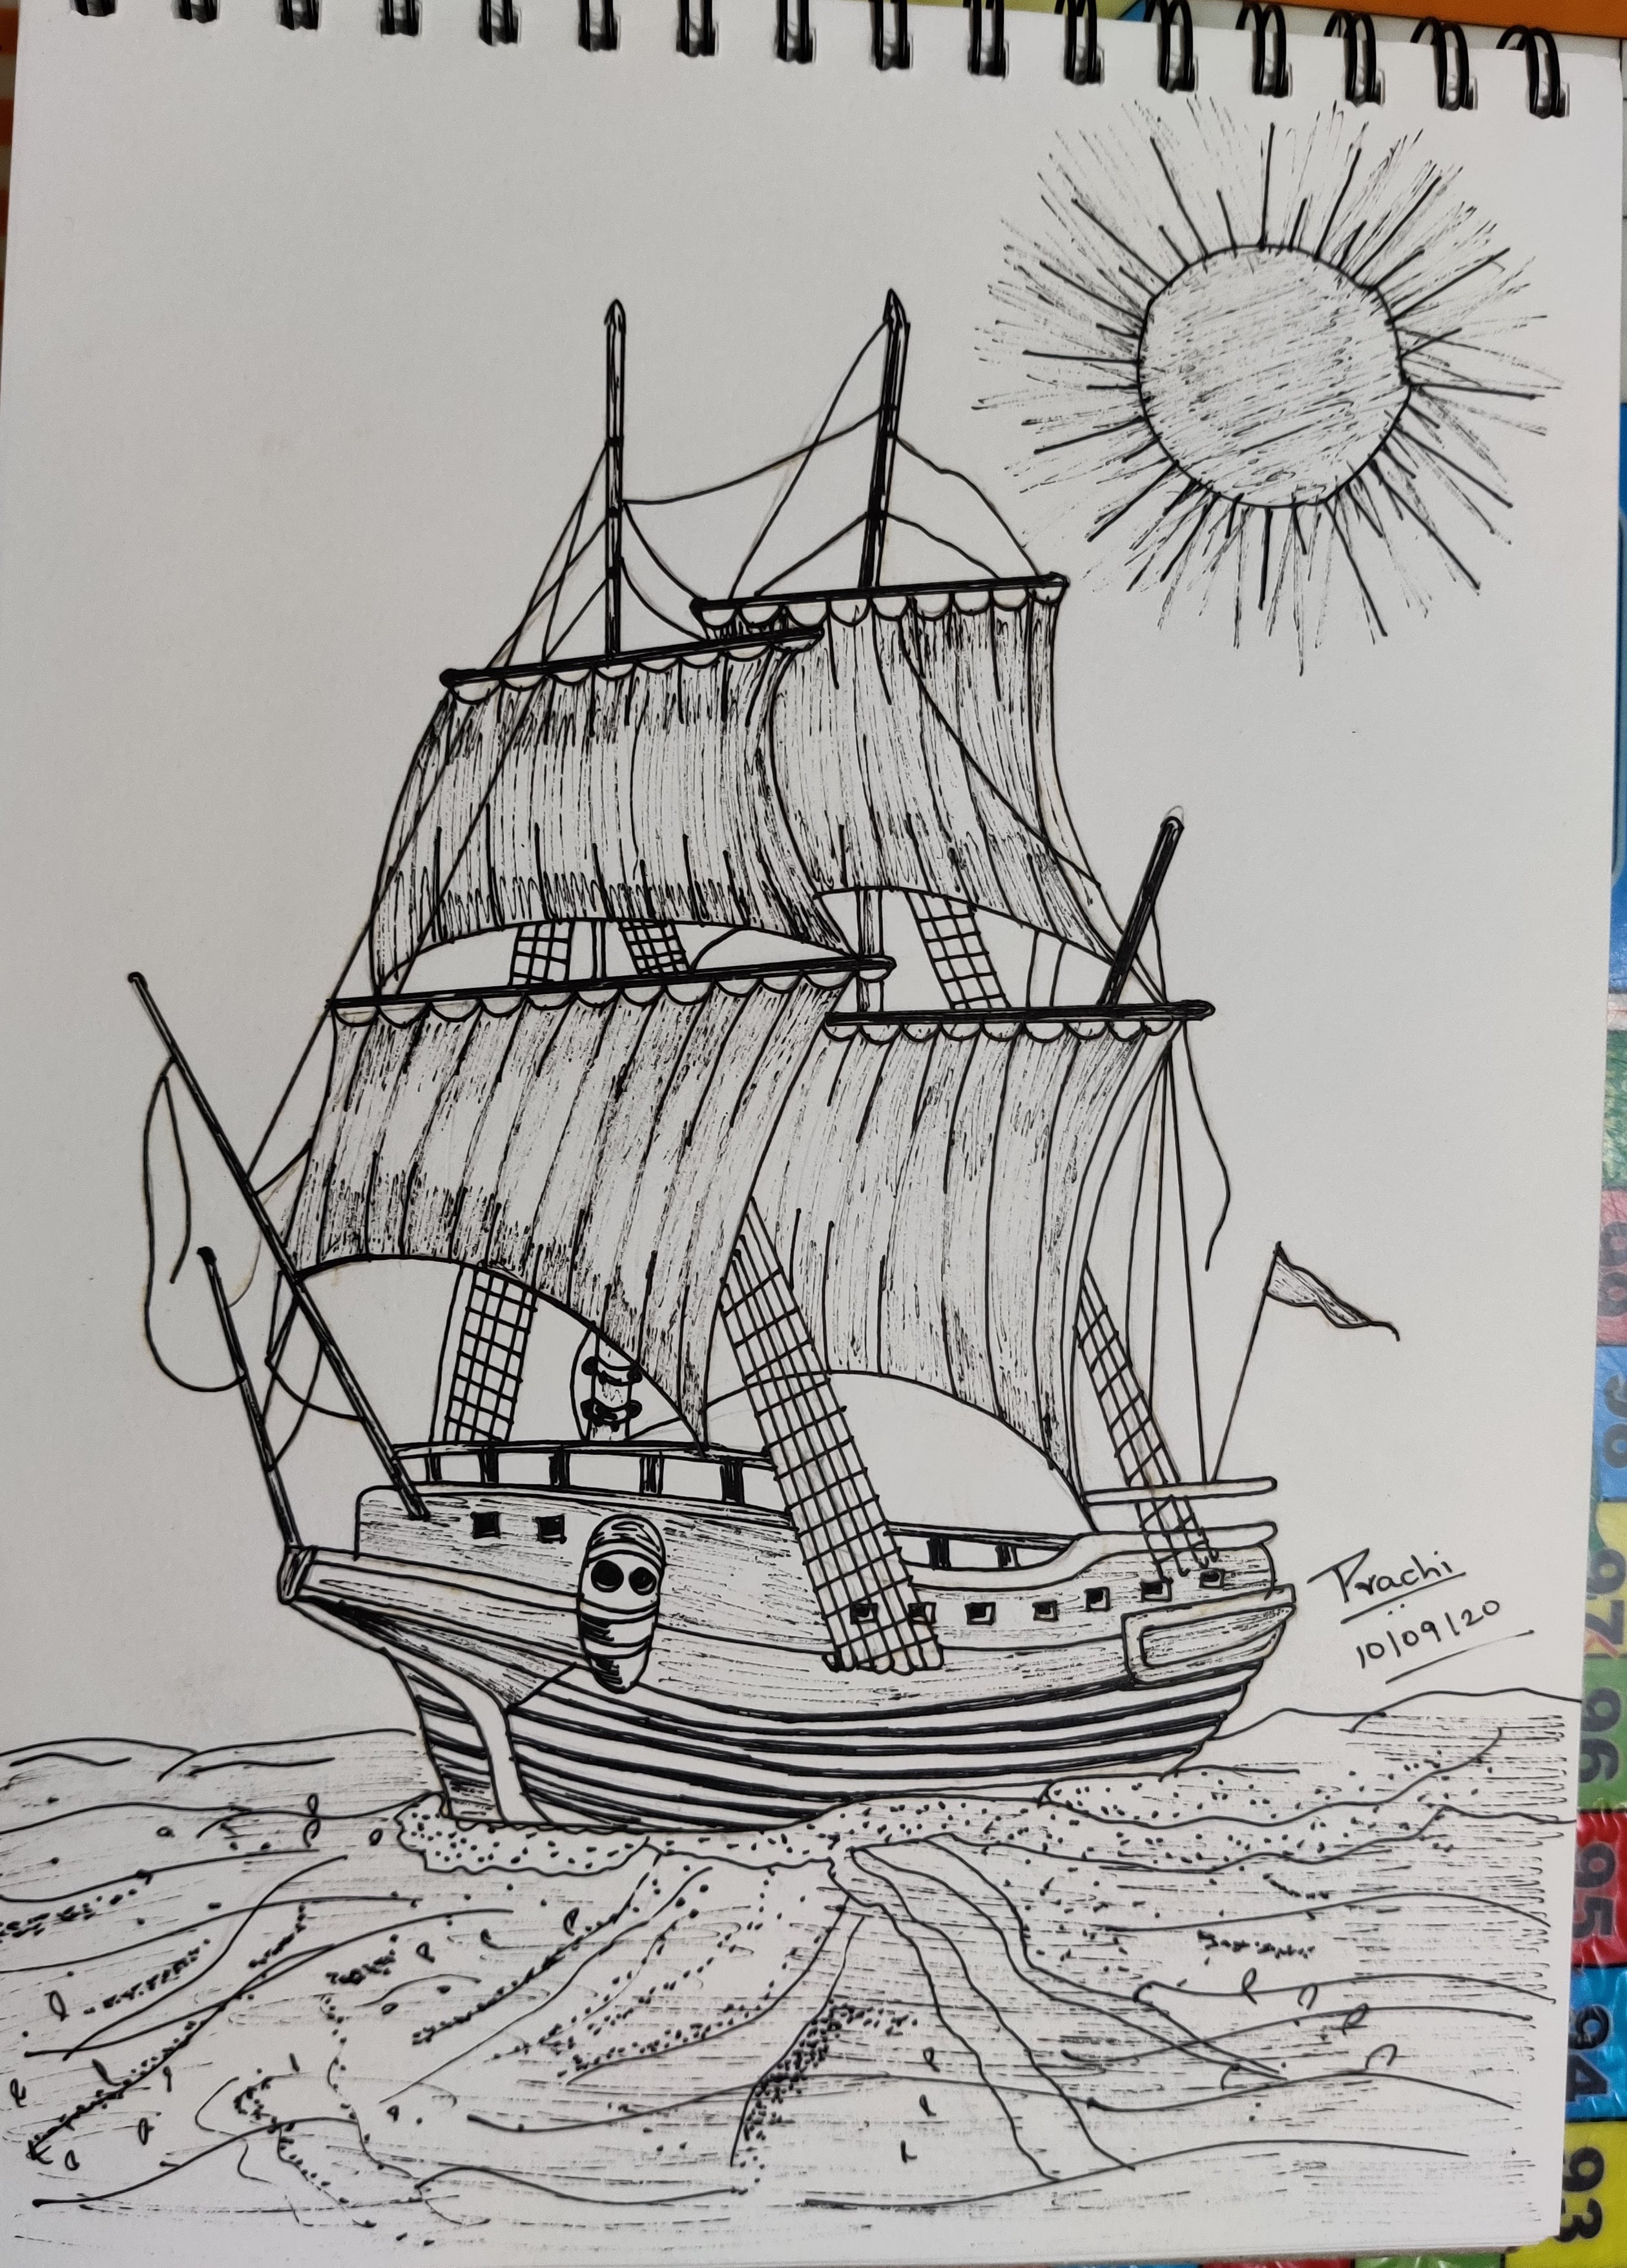 Prachi
10/09/20
99
98
97
96
95
94
93